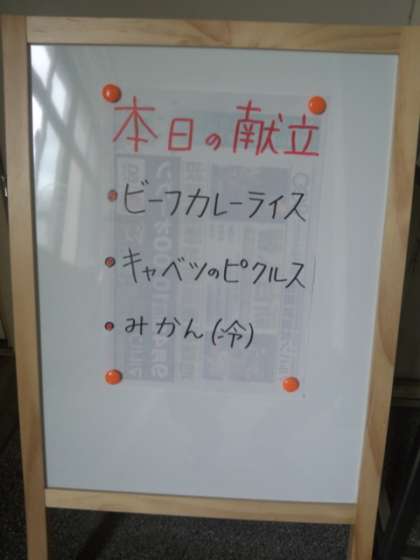 本日の献立
・ビーフカレーライス
・キャベツのピクルス
・みかん(冷)